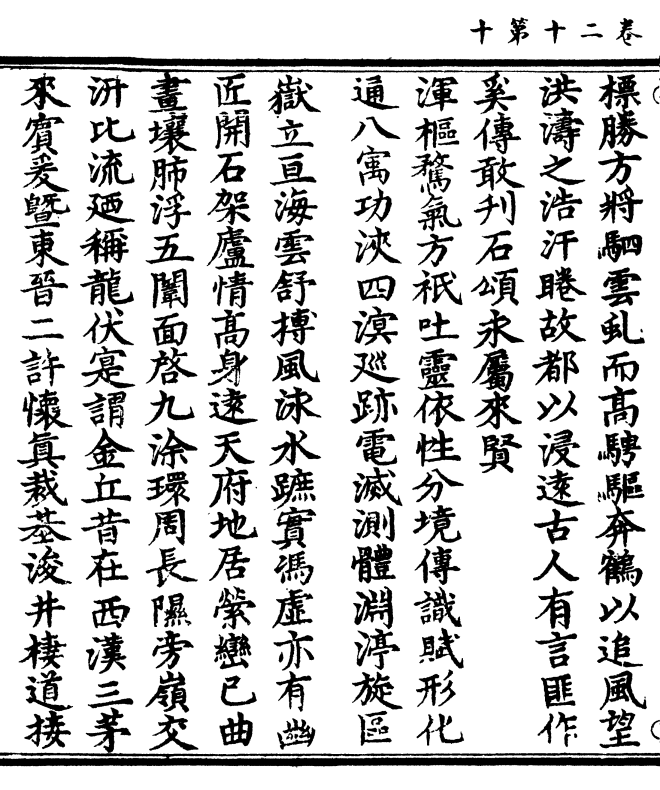 卷二十第十
標勝方將駟雲虬而高騁驅奔鶴以追風望
洪濤之浩汗睠故都以浸遠古人有言匪作
奚傳敢刋石頌永屬來賢
渾樞騖氣方祇吐靈依性分境傳識賦形化
通八㝢功浹四溟廵跡電滅測體淵渟旋區
嶽立亘海雲舒摶風泳水蹠實馮虛亦有幽
匠開石架廬情高身遠天府地居縈巒已曲
畫壤肺浮五闈面啓九涂環周長隰旁嶺交
汧比流廼稱龍伏寔謂金丘昔在西漢三茅
來賓爰曁東晉二許懷眞栽基浚井棲道接